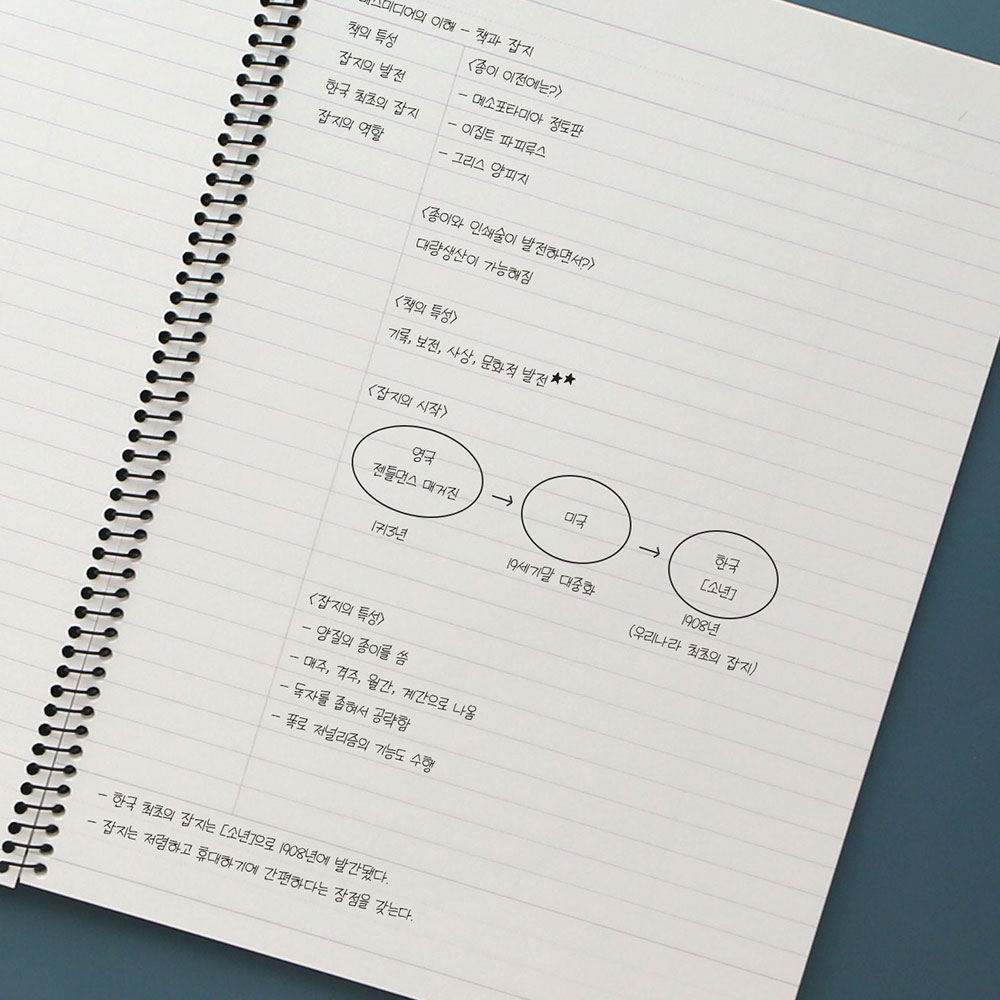 매스미디어의 이해 - 책과 잡지
책의 특성
잡지의 발전
한국 최초의 잡지
잡지의 역할
<종이 이전에는?>
- 메소포타미아 정토판
- 이집트 파피루스
- 그리스 양피지
<종이와 인쇄술이 발전하면서?>
대량생산이 가능해짐
<책의 특성>
기록, 보전, 사상, 문화적 발전★★
<잡지의 시작>
영국
젠틀먼스 매거진
1713년
→
미국
19세기말 대중화
→
한국
[소년]
1908년
(우리나라 최초의 잡지)
<잡지의 특성>
- 양질의 종이를 씀
- 매주, 격주, 월간, 계간으로 나옴
- 독자를 좁혀서 공략함
- 폭로 저널리즘의 기능도 수행
- 한국 최초의 잡지는 [소년]으로 1908년에 발간됐다.
- 잡지는 저렴하고 휴대하기에 간편하다는 장점을 갖는다.